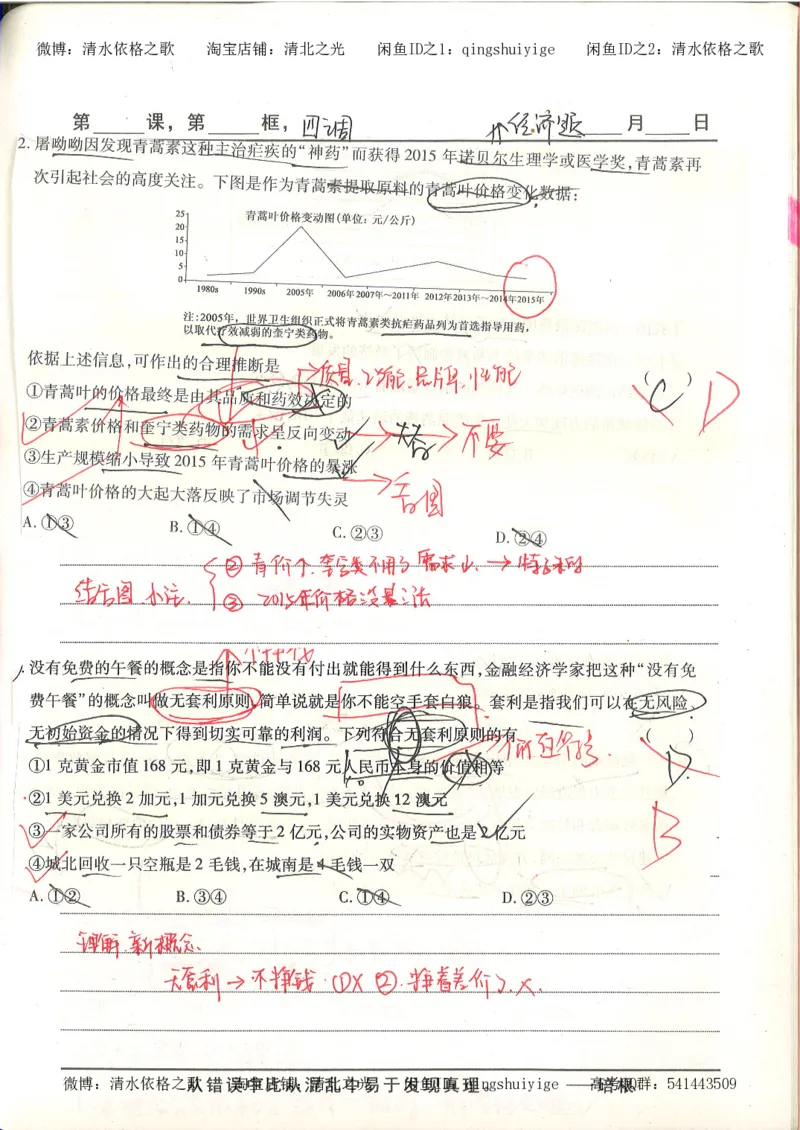 微博：清水依格之歌 淘宝店铺：清北之光 闲鱼ID之1：qingshuiyige 闲鱼ID之2：清水依格之歌
第 课，第 框，四调 经济题 月 日
2. 屠呦呦因发现青蒿素这种主治疟疾的“神药”而获得 2015 年诺贝尔生理学或医学奖，青蒿素再
次引起社会的高度关注。下图是作为青蒿素提取原料的青蒿叶价格变化数据：
青蒿叶价格变动图(单位：元/公斤)
25
20
15
10
5
0
1980s 1990s 2005年 2006年2007年～2011年 2012年2013年～2014年2015年
注：2005年，世界卫生组织正式将青蒿素类抗疟药品列为首选指导用药，
以取代疗效减弱的奎宁类药物。
依据上述信息，可作出的合理推断是 ( )
质量、功能、品牌、性能
C D
①青蒿叶的价格最终是由其品质和药效决定的
②青蒿素价格和奎宁类药物的需求呈反向变动
→ 不要
③生产规模缩小导致 2015 年青蒿叶价格的暴涨
→ 看图
④青蒿叶价格的大起大落反映了市场调节失灵
A. ①③ B. ①④ C. ②③ D. ②④
结合图、小注
② 青价个、奎宁类不用了需求小
③ 2015年价格没暴涨
没有免费的午餐的概念是指你不能没有付出就能得到什么东西，金融经济学家把这种“没有免
费午餐”的概念叫做无套利原则，简单说就是你不能空手套白狼。套利是指我们可以在无风险、
无初始资金的情况下得到切实可靠的利润。下列符合无套利原则的有 ( )
D
①1 克黄金市值 168 元，即 1 克黄金与 168 元人民币本身的价值相等
②1 美元兑换 2 加元，1 加元兑换 5 澳元，1 美元兑换 12 澳元
③一家公司所有的股票和债券等于 2 亿元，公司的实物资产也是 2 亿元
B
④城北回收一只空瓶是 2 毛钱，在城南是 4 毛钱一双
A. ①② B. ③④ C. ①④ D. ②③
理解新概念
无套利→不挣钱 ①X ②挣着差价了.X.
微博：清水依格之歌 淘宝店铺：清北之光 闲鱼ID：qingshuiyige 高考QQ群：541443509
从错误中比从混乱中易于发现真理。——培根